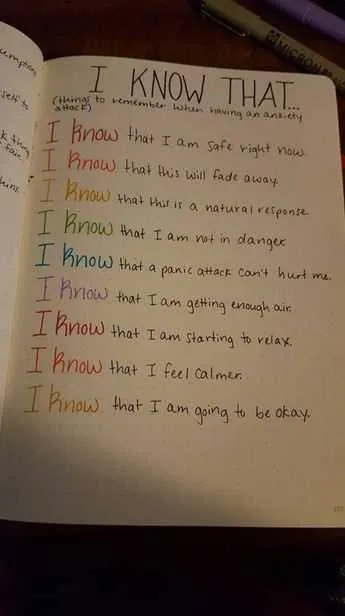 umption
self to
k they
fair.
I KNOW THAT...
(things to remember when having an anxiety
attack)
I know that I am safe right now.
I know that this will fade away.
I know that this is a natural response.
I know that I am not in danger.
I know that a panic attack can't hurt me.
I know that I am getting enough air.
I know that I am starting to relax.
I know that I feel calmer.
I know that I am going to be okay.
MICRON